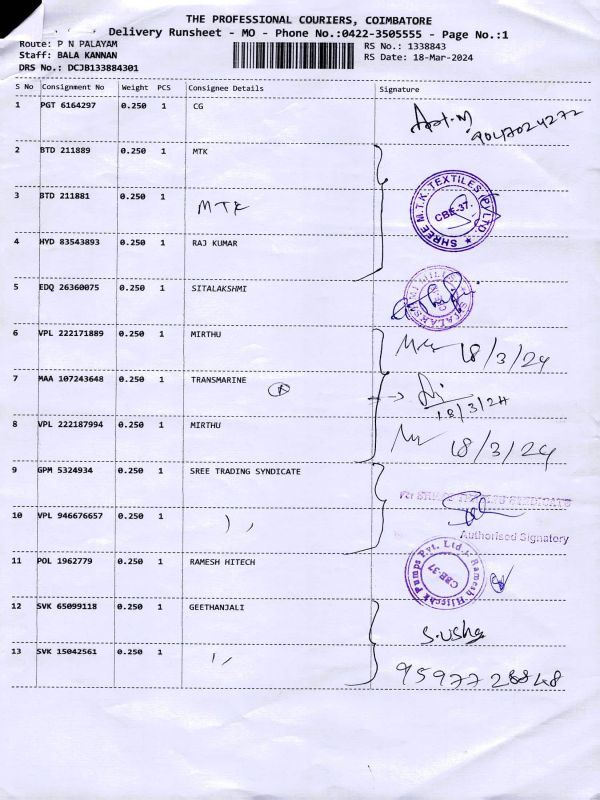 THE PROFESSIONAL COURIERS, COIMBATORE
Delivery Runsheet - MO - Phone No.:0422-3505555 - Page No.:1
Route: P N PALAYAM
Staff: BALA KANNAN
DRS No.: DCJB133884301
RS No.: 1338843
RS Date: 18-Mar-2024
S No Consignment No Weight PCS Consignee Details Signature
1 PGT 6164297 0.250 1 CG
9047024272
2 BTD 211889 0.250 1 MTK
3 BTD 211881 0.250 1 MTK
SHREE M.T.K. TEXTILES (P) LTD
CBE-37.
4 HYD 83543893 0.250 1 RAJ KUMAR
5 EDQ 26360075 0.250 1 SITALAKSHMI
6 VPL 222171889 0.250 1 MIRTHU 18/3/24
7 MAA 107243648 0.250 1 TRANSMARINE 18/3/24
8 VPL 222187994 0.250 1 MIRTHU 18/3/24
9 GPM 5324934 0.250 1 SREE TRADING SYNDICATE
10 VPL 946676657 0.250 1 ) ,
Authorised Signatory
11 POL 1962779 0.250 1 RAMESH HITECH
Ramesh Hitech Pumps Pvt. Ltd.
CBE-37
12 SVK 65099118 0.250 1 GEETHANJALI
S.Usha
13 SVK 15042561 0.250 1 ' ,